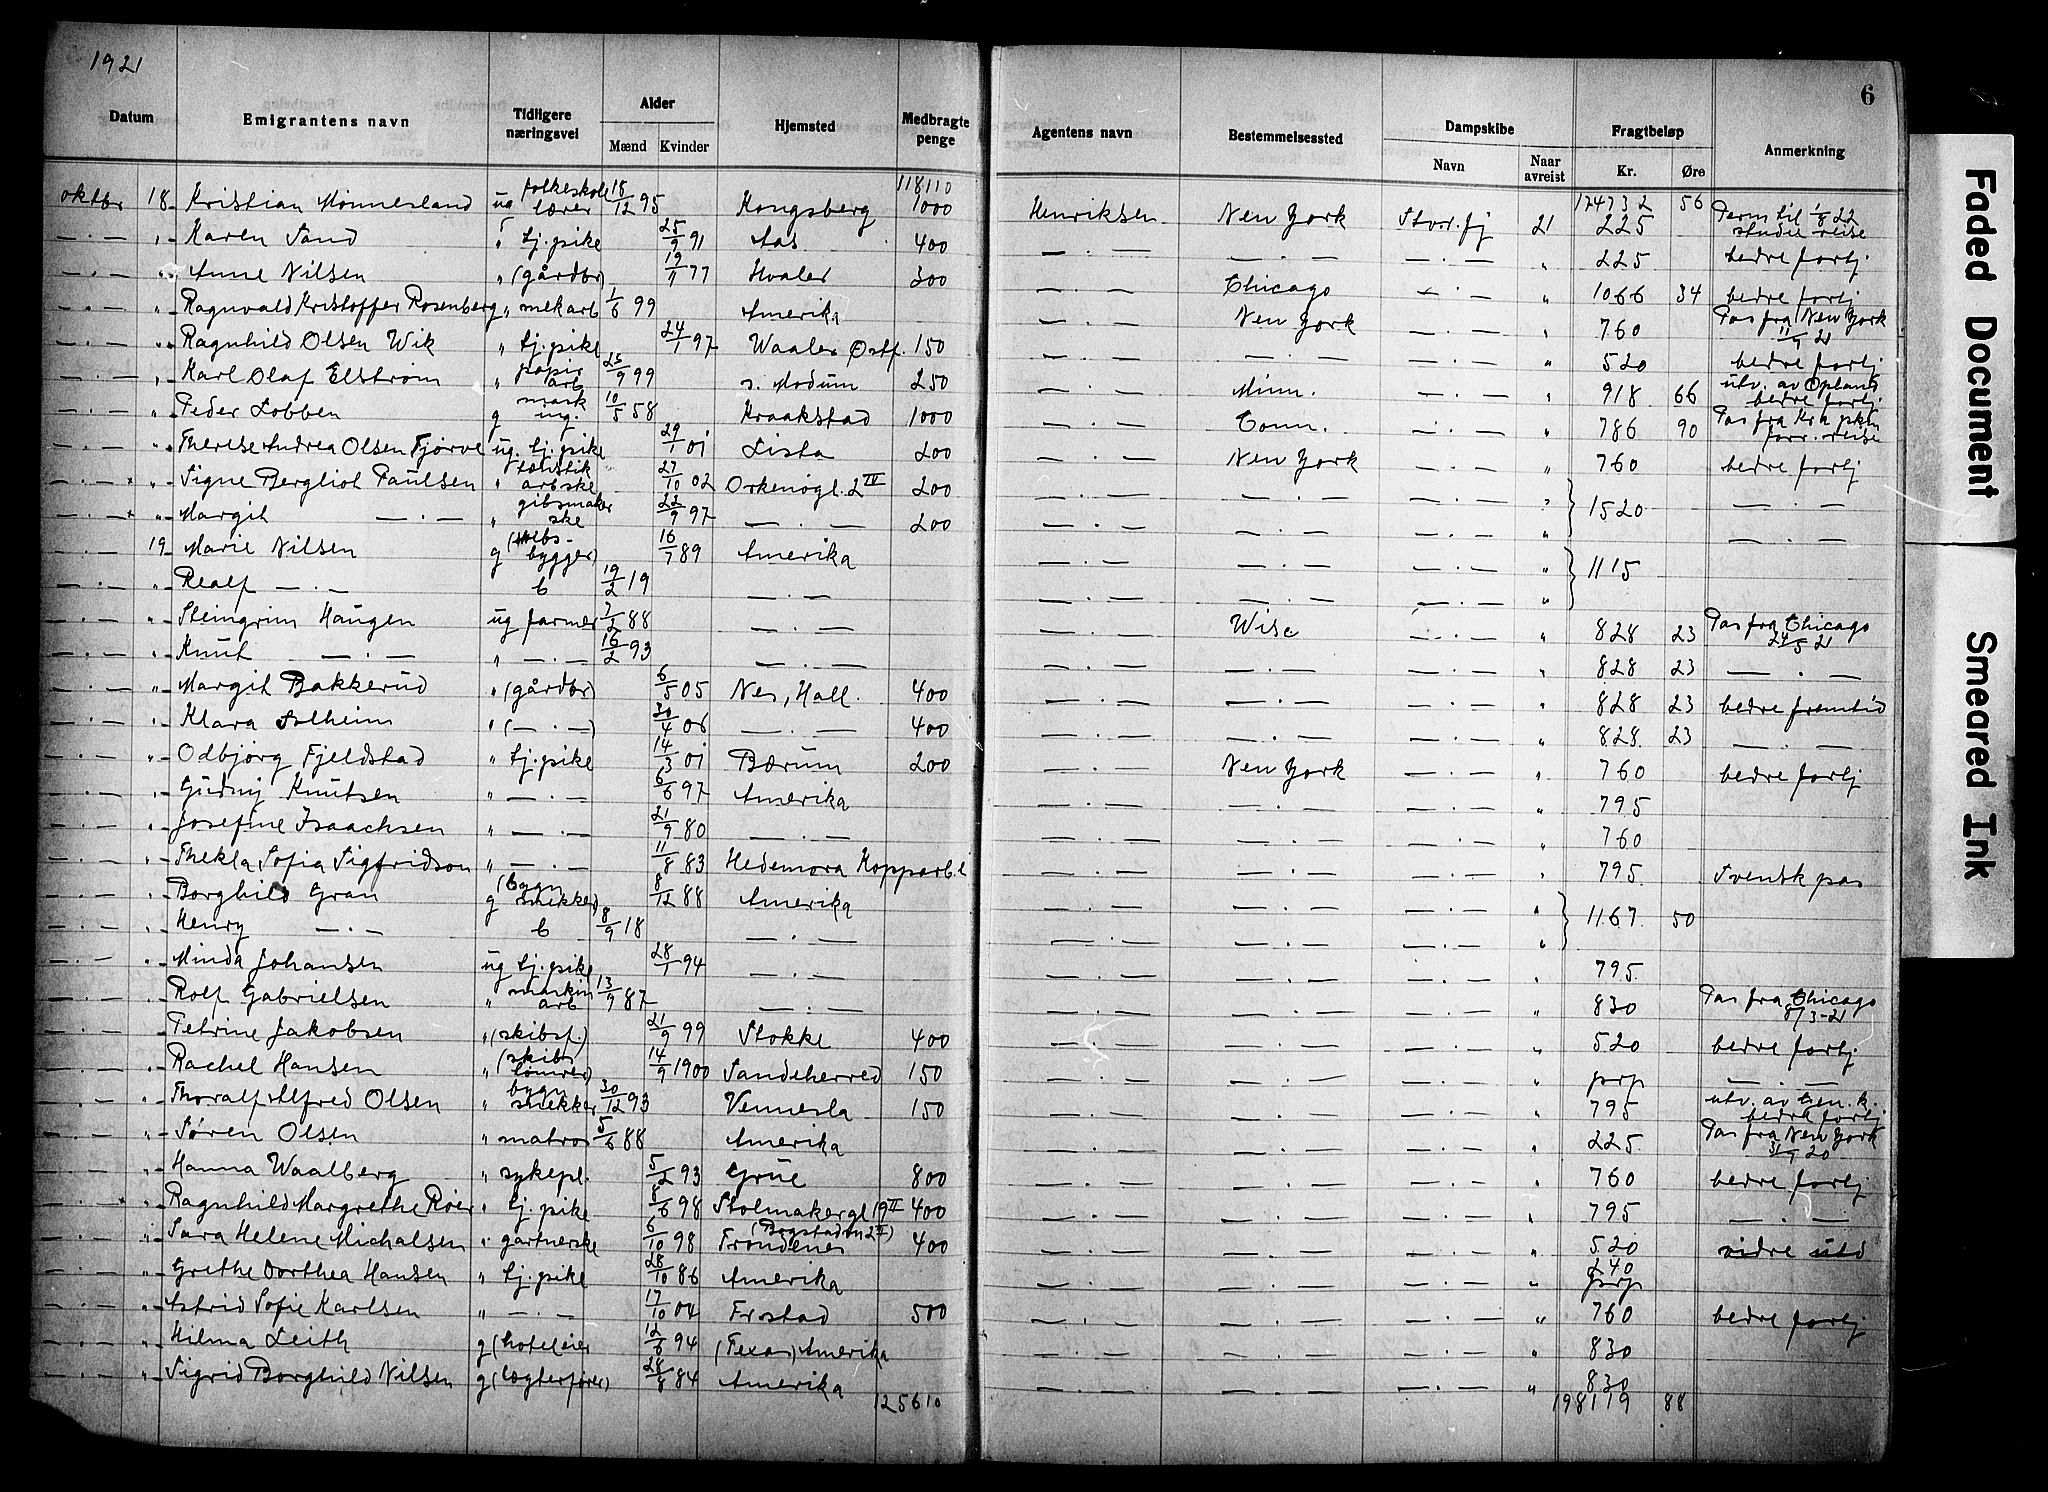 1921
6
Datum | Emigrantens navn | Tidligere næringsvei | Alder Mænd Kvinder | Hjemsted | Medbragte penge | Agentens navn | Bestemmelsessted | Dampskibe Navn Naar avreist | Fragtbeløp Kr. Øre | Anmerkning
118110 174732 56
oktbr 18 Kristian Mønnesland ug folkeskole lærer 18/12 95 Kongsberg 1000 Henriksen New York Stvr.fj 21 225 Perm til 1/8 22 studie reise
— . — " Karen Sand " tj.pike 25/9 91 Aas 400 — . — — . — " 225 bedre fortj
— . — " Anne Nilsen " (gårdbr) 77 Hvaler 300 — . — Chicago — . — " 1066 34 bedre fortj
— . — " Ragnvald Kristoffer Rosenberg " mek arb 1/6 99 Amerika — . — New York — . — " 760 Pas fra New York 21
— . — " Ragnhild Olsen Wik " tj.pike 24/1 97 Waaler Østf. 150 — . — — . — — . — " 520 bedre fortj
— . — " Karl Olaf Elstrøm " papir arb 25/9 99 s. Modum 250 — . — Minn. — . — " 918 66 utv. av Opland bedre fortj.
— . — " Peder Lobben g 10/5 58 Kraakstad 1000 — . — Conn. — . — " 786 90 Pas fra Kra pkm forr. reise
— . — " Therese Andrea Olsen Fjørve ug. tj.pike 29/1 01 Lista 200 — . — New York — . — " 760 bedre fortj
— . — " Signe Bergliot Paulsen " arbske 27/10 02 Orknøgt. 2 IV 200 — . — — . — — . — " 1520 — . —
— . — " Margit — . — " gibsmaker ske 22/9 97 — . — 200 — . — — . — — . — " — . —
— . — 19 Marie Nilsen g (skibs-bygger) 16/7 89 Amerika — . — — . — — . — " 1115
— . — " Realf — . — b 19/2 19 — . — — . — — . — — . — "
— . — " Steingrim Haugen ug farmer 7/2 88 — . — — . — Wisc — . — " 828 23 Pas fra Chicago 24/5 21
— . — " Knut — . — " — . — 16/2 93 — . — — . — — . — — . — " 828 23 — . —
— . — " Margit Bakkerud " (gårdbr) 6/5 05 Nes, Hall. 400 — . — — . — — . — " 828 23 bedre fremtid
— . — " Klara Solheim " (— . —) 30/4 06 — . — 400 — . — — . — — . — " 828. 23 — . —
— . — " Odbjørg Fjeldstad " tj.pike 14/3 01 Bærum 200 — . — New York — . — " 760 bedre fortj
— . — " Gudny Knutsen " — . — 6/6 97 Amerika — . — — . — — . — " 795
— . — " Josefine Isaachsen " — . — 21/9 80 — . — — . — — . — — . — " 760
— . — " Thekla Sofia Sigfridson " — . — 11/8 83 Hedemora Kopparb. l — . — — . — — . — " 795. Svensk pas
— . — " Borghild Gran g (bygn snikker) 8/12 88 Amerika — . — — . — — . — " 1167. 50
— . — " Henry — . — b 8/9 18 — . — — . — — . — — . — "
— . — " Minda Johansen ug tj.pike 28/1 94 — . — — . — — . — — . — " 795.
— . — " Rolf Gabrielsen " maskin arb 13/9 87 — . — — . — — . — — . — " 830 Pas fra Chicago 8/3-21
— . — " Petrine Jakobsen " (skibsf.) 21/9 99 Stokke 400 — . — — . — — . — " 520 bedre fortj
— . — " Rachel Hansen " (skibs tømrer) 14/9 1900 Sandeherred 150 — . — — . — — . — " prp — . —
— . — " Thoralf Alfred Olsen " bygn snekker 30/12 93 Vennesla 150 — . — — . — — . — " 795 utv. av Gen.k. bedre fortj
— . — " Søren Olsen " matros 5/6 88 Amerika — . — — . — — . — " 225. Pas fra New York 20
— . — " Hanna Waalberg " sykepl. 5/2 93 Grue 800 — . — — . — — . — " 760 bedre fortj
— . — " Ragnhild Margrethe Røer " tj.pike 8/6 98 Stolmakergt 19 II 400 — . — — . — — . — " 795 — . —
— . — " Sara Helene Michalsen " gartnerske 6/10 98 (Bogstadvn 2 II) Trondenes 400 — . — — . — — . — " 520 vidre utd
— . — " Grethe Dorthea Hansen " tj.pike 28/10 86 Amerika — . — — . — — . — " 240 prp
— . — " Astrid Sofie Karlsen " — . — 17/10 04 Frstad 500 — . — — . — — . — " 760 bedre fortj
— . — " Hilma Leith g (hoteleier 12/6 94 (Texas) Amerika — . — — . — — . — " 830
— . — " Sigrid Borghild Nilsen g (lægterfører) 28/8 84 Amerika — . — — . — — . — " 830
125610 198119 88
Faded Document
Smeared Ink